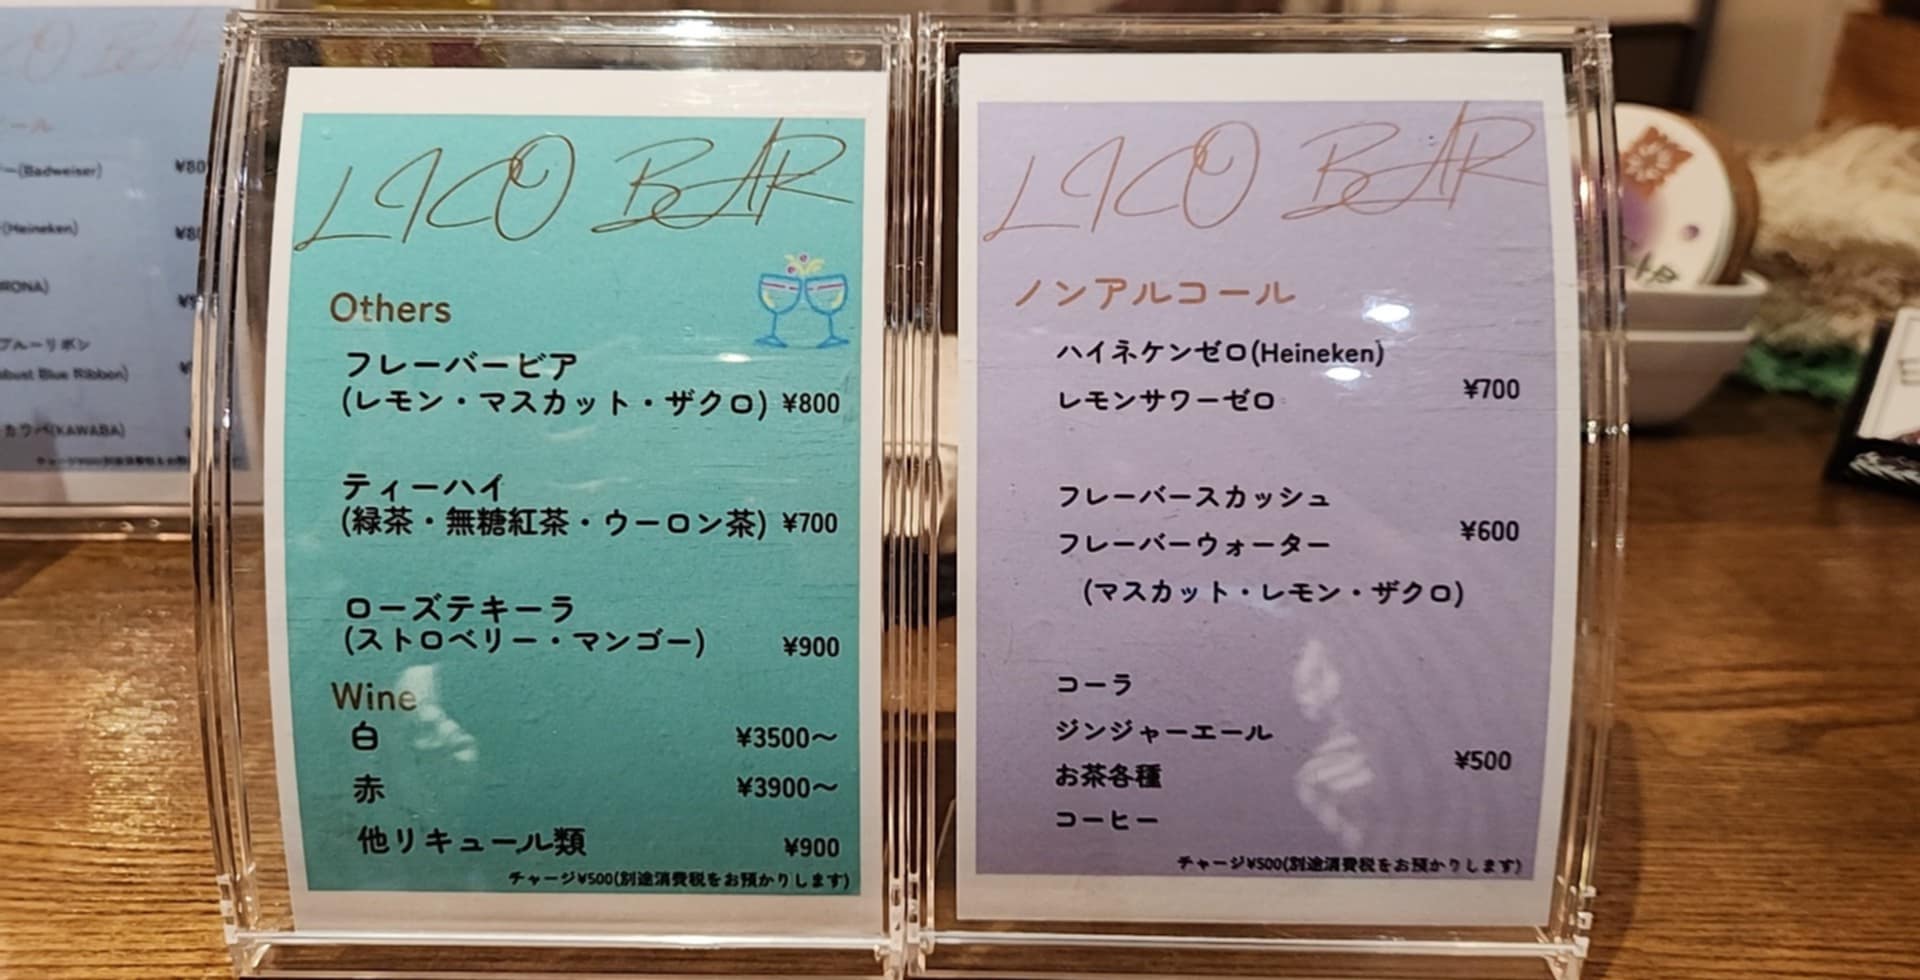 (Badweiser)
(Heineken)
ブルーリボン
Blue Ribbon)
カワバ(KAWABA)
LICO BAR
Others
フレーバービア
(レモン・マスカット・ザクロ) ¥800
ティーハイ
(緑茶・無糖紅茶・ウーロン茶) ¥700
ローズテキーラ
(ストロベリー・マンゴー) ¥900
Wine
白 ¥3500〜
赤 ¥3900〜
他リキュール類 ¥900
チャージ¥500(別途消費税をお預かりします)
LICO BAR
ノンアルコール
ハイネケンゼロ(Heineken)
レモンサワーゼロ ¥700
フレーバースカッシュ
フレーバーウォーター ¥600
(マスカット・レモン・ザクロ)
コーラ
ジンジャーエール
お茶各種 ¥500
コーヒー
チャージ¥500(別途消費税をお預かりします)